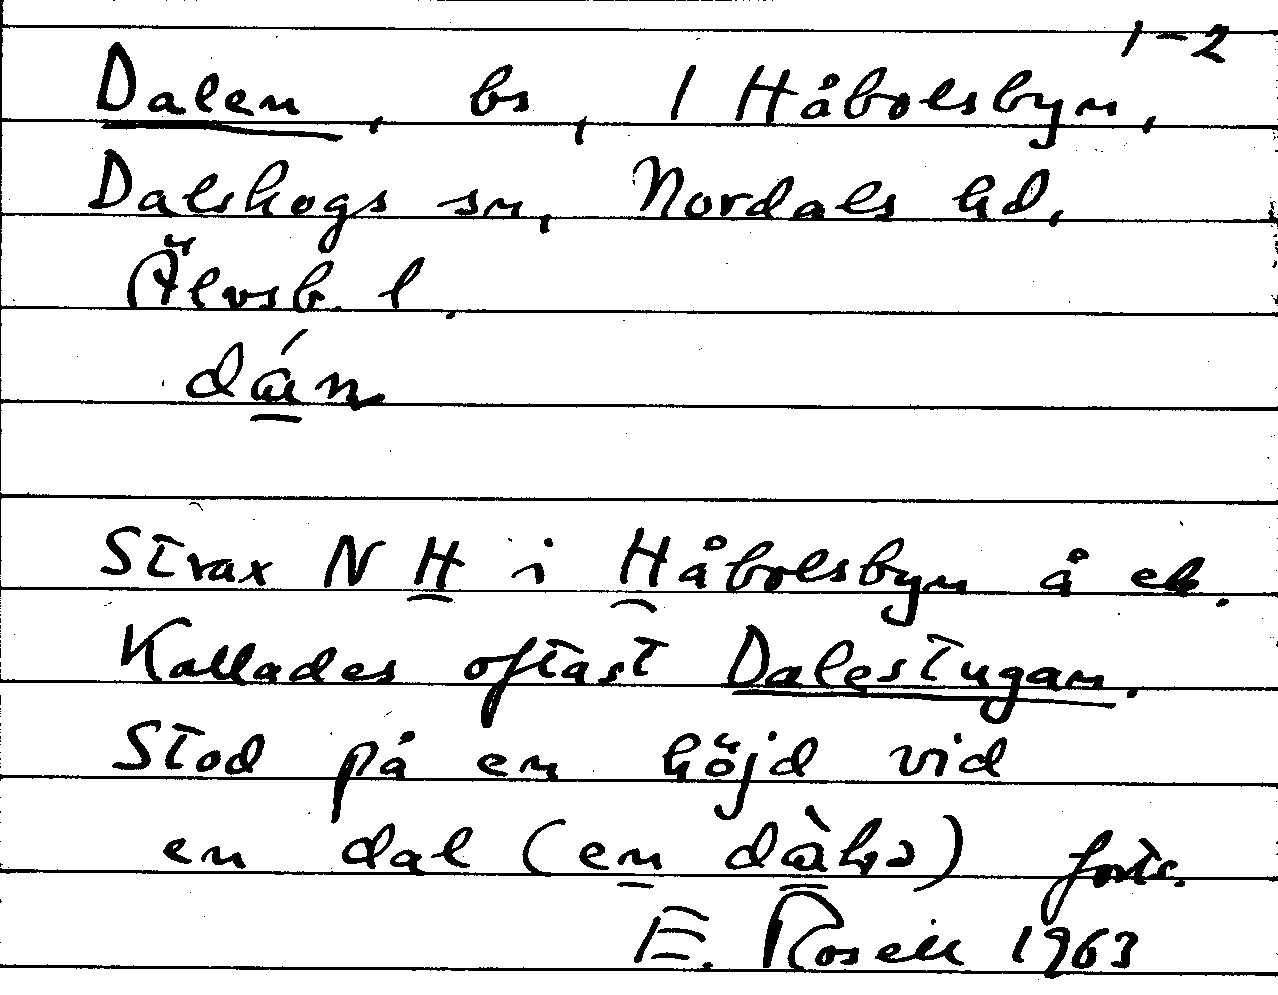 1-2
Dalen, bs, 1 Håbolsbyn,
Dalskogs sn, Nordals hd,
Älvsb. l.
dá̱n
Strax N H i Håbolsbyn å ek.
Kallades oftast Dalestugan.
Stod på en höjd vid
en dal (en) forts.
E. Rosell 1963